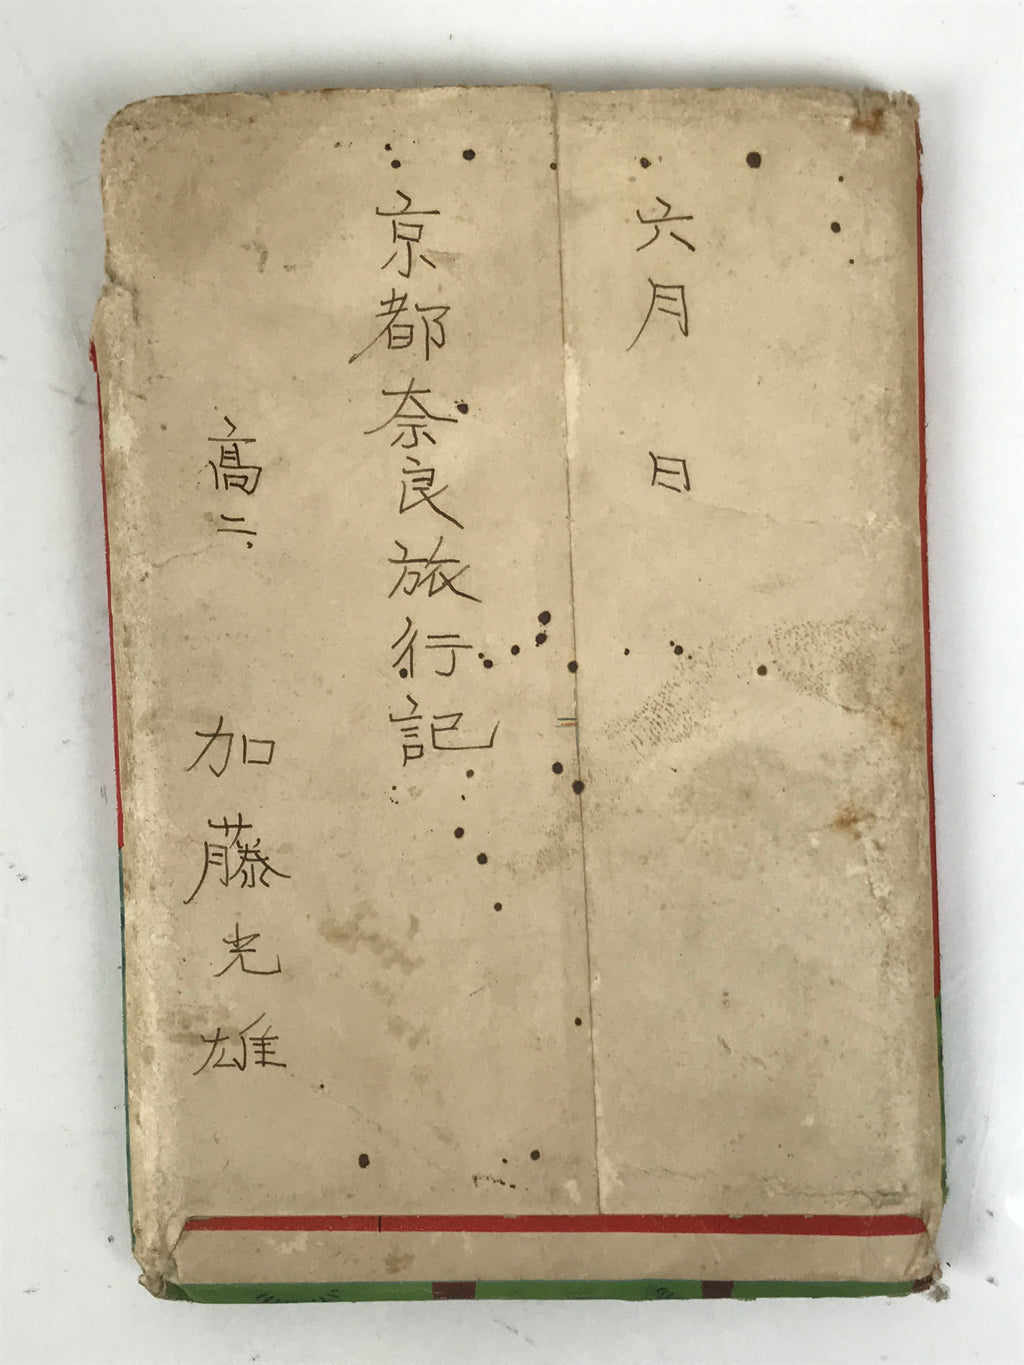 六月　日
京都奈良旅行記
高二　加藤光雄